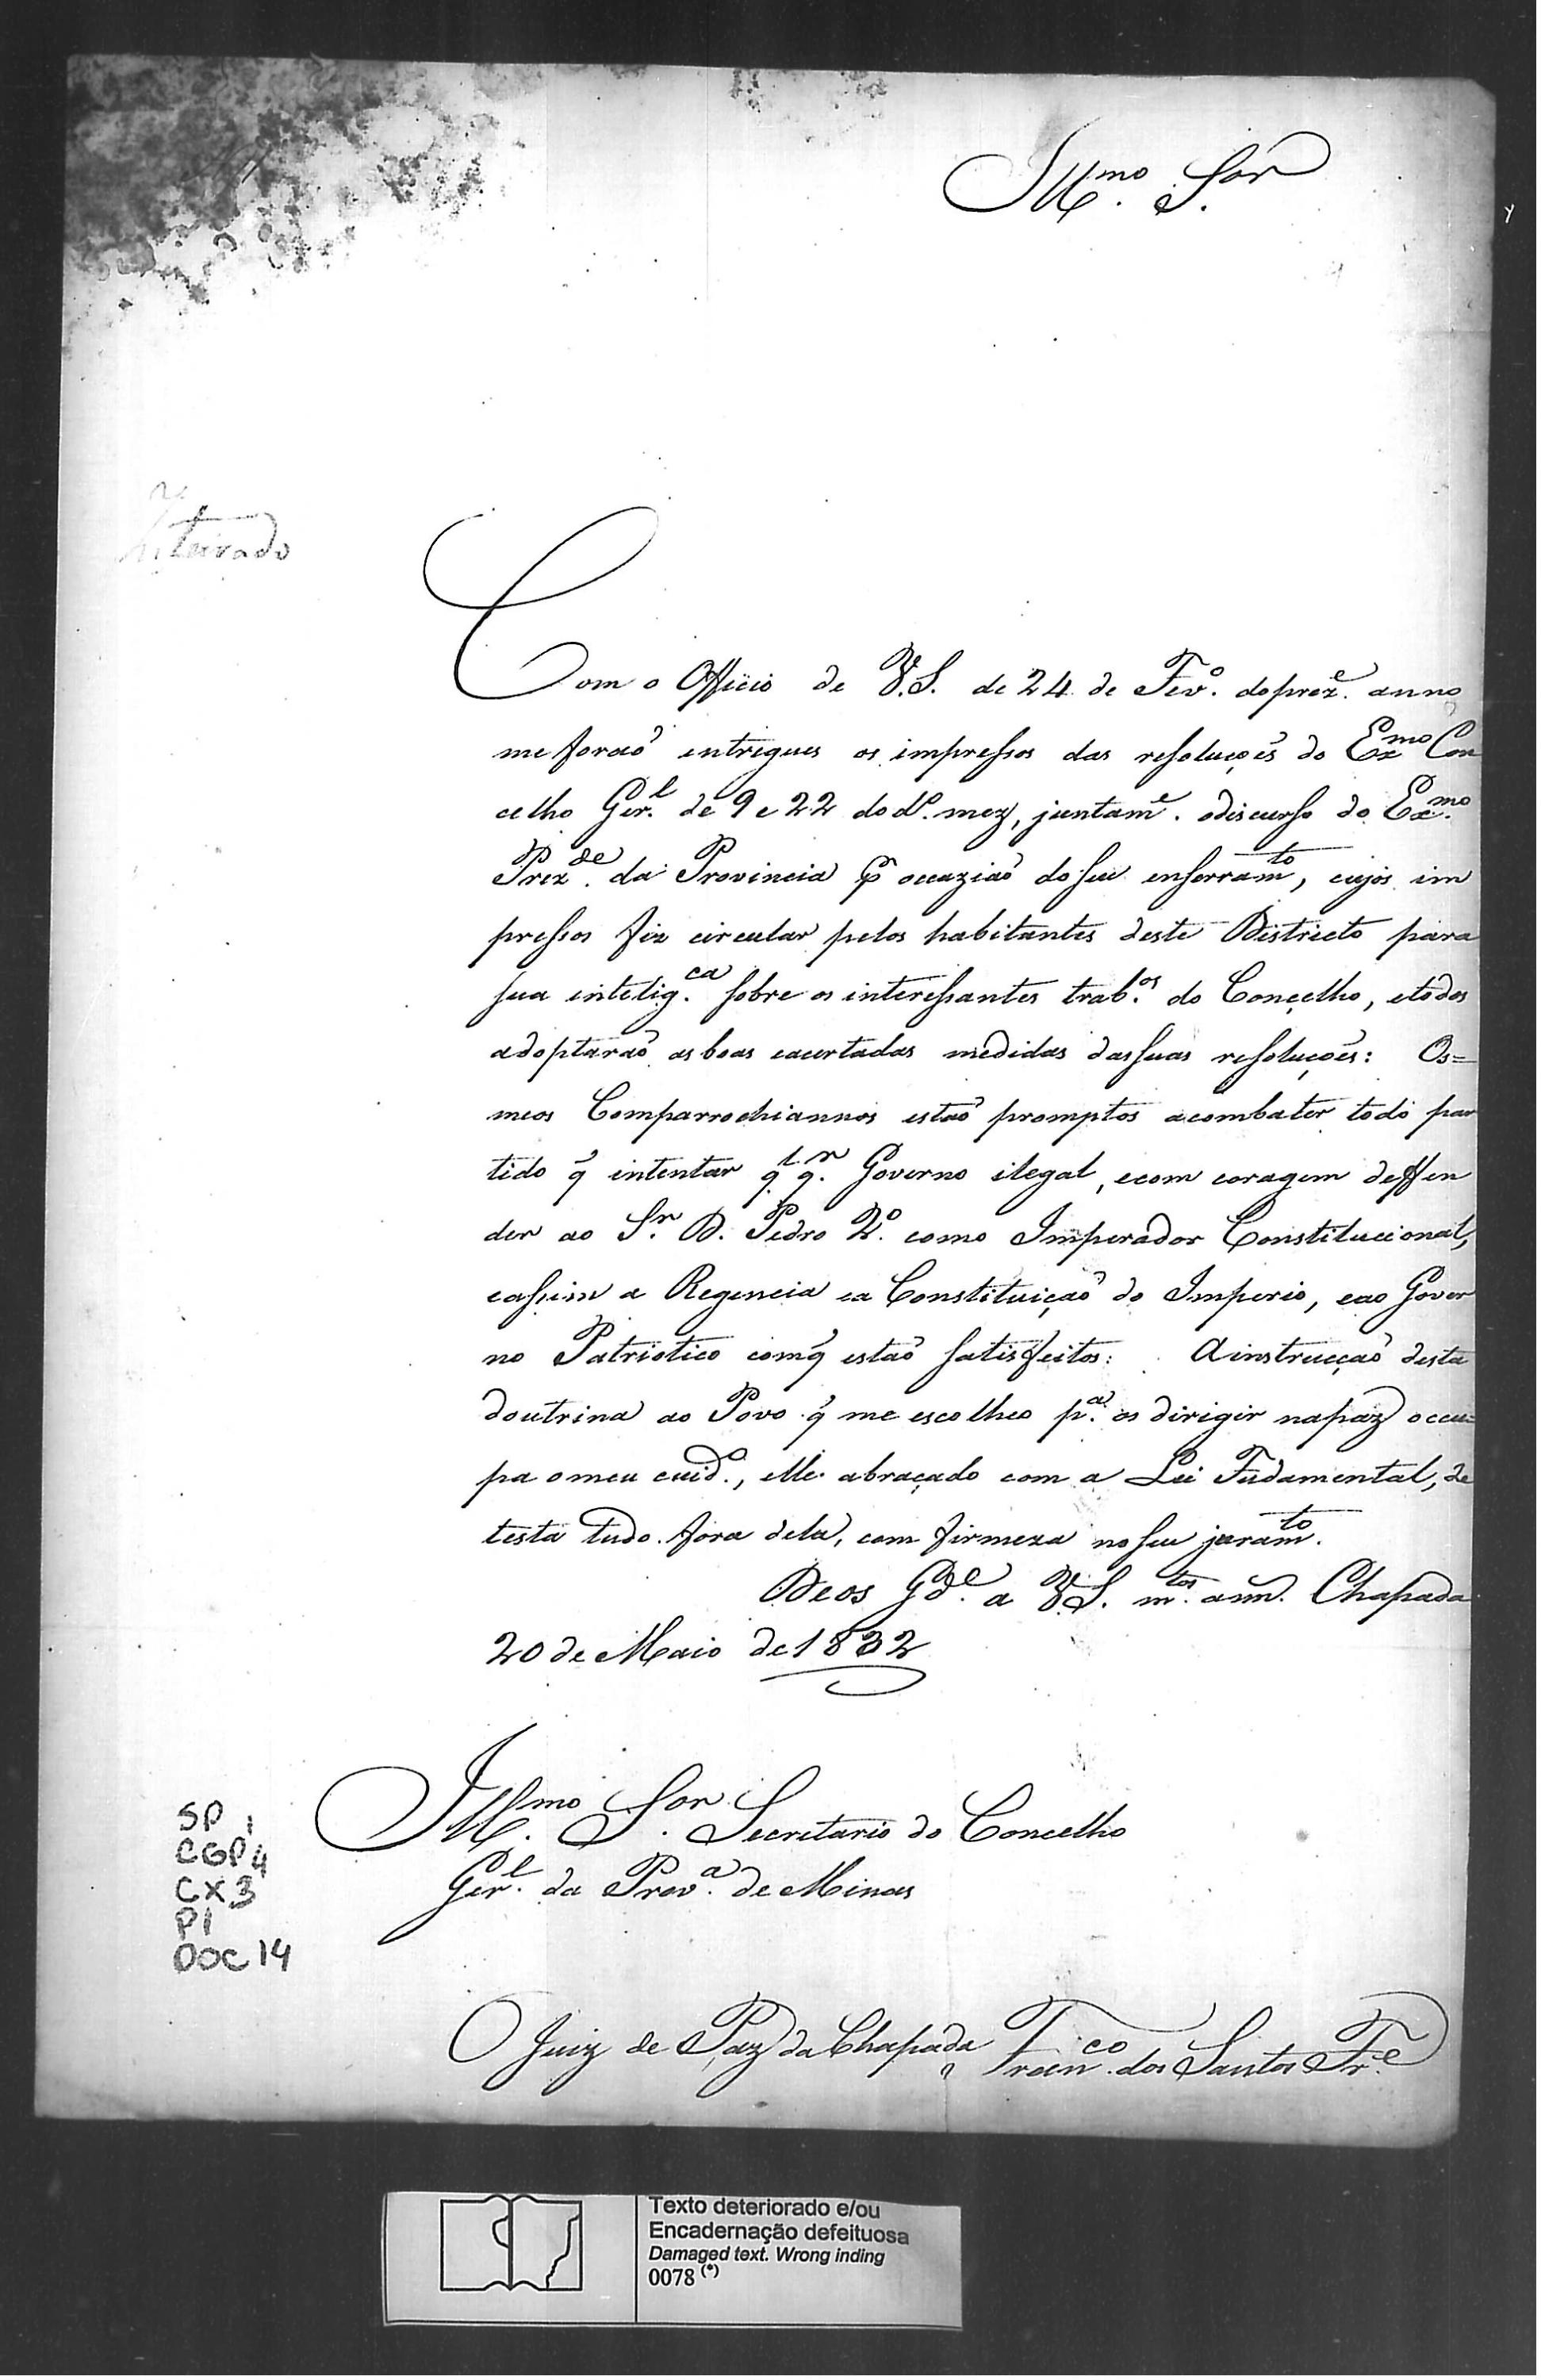 Ill.mo S.or
Inteirado
Com o Officio de V.S. de 24 de Fev.o do prez.e anno
me foraõ entregues os impressos das resoluções do Ex.mo Con
celho Ger.l de 9 e 22 do d.o mez, juntam.e o discurso do Ex.mo
Prez.de da Provincia p̃ occaziaõ do seu enserram.to, cujos im
pressos fiz circular pelos habitantes deste Districto para
sua intelig.ca sobre os interessantes trab.os do Conçelho, e todos
adoptaraõ as boas e acertadas medidas das suas resoluções: Os=
meos Comparrochiannos estaõ promptos a combater todo par
tido q̃ intentar q.l q.r Governo ilegal, e com coragem deffen
der ao S.r D. Pedro 2.o como Imperador Constitucional,
e assim a Regencia e a Constituiçaõ do Imperio, e ao Gover
no Patriotico com q̃ estaõ satisfeitos: A instrucçaõ desta
doutrina ao Povo q̃ me escolheo p.a os dirigir na paz occu=
pa o meu cuid.o, elle abraçado com a Lei Fudamental, de
testa tudo fora dela, com firmeza no seu juram.to.
Deos G.de a V.S. m.tos ann. Chapada
20 de Maio de 1832
Ill.mo S.or Secretario do Concelho
Ger.l da Prov.a de Minas
SP 1
CGP 4
CX 3
P1
DOC 14
O Juiz de Paz da Chapada Fran.co dos Santos Fr.e
Texto deteriorado e/ou
Encadernação defeituosa
Damaged text. Wrong inding
0078 (*)